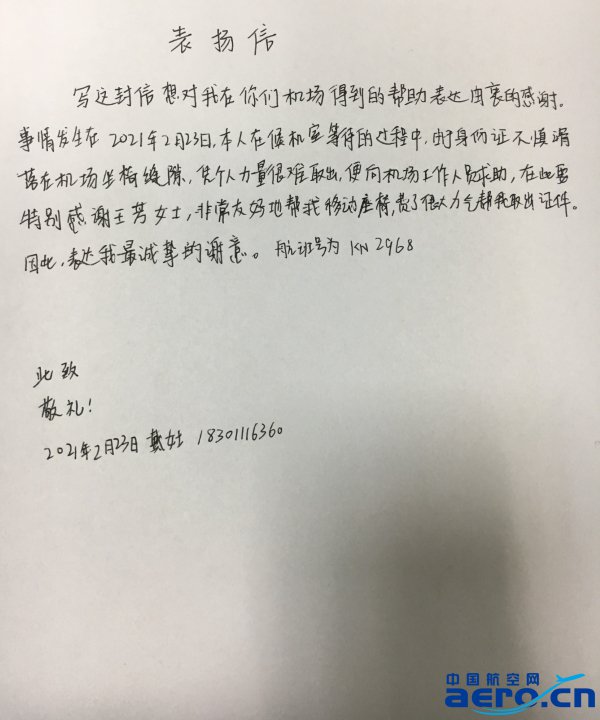 表扬信
写这封信想对我在你们机场得到的帮助表达由衷的感谢。
事情发生在2021年2月23日,本人在候机室等待的过程中,由于身份证不慎滑
落在机场坐椅缝隙,凭个人力量很难取出,便向机场工作人员求助,在此要
特别感谢王芳女士,非常友好地帮我移动座椅,费了很大力气帮我取出证件。
因此,表达我最诚挚的谢意。航班号为 KN2968
此致
敬礼!
2021年2月23日 女士 18301116360
中国航空网
aero.cn